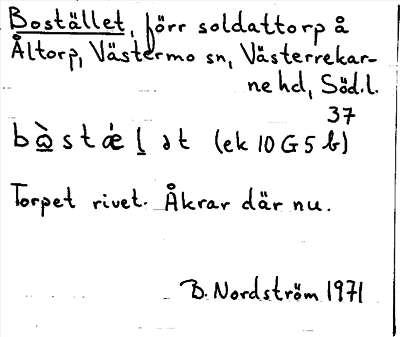 Bostället, förr soldattorp å
Åltorp, Västermo sn, Västerrekar-
ne hd, Söd.l.
37
bo̱̊̀stǽḷət (ek 10 G 5 b)
Torpet rivet. Åkrar där nu.
B. Nordström 1971